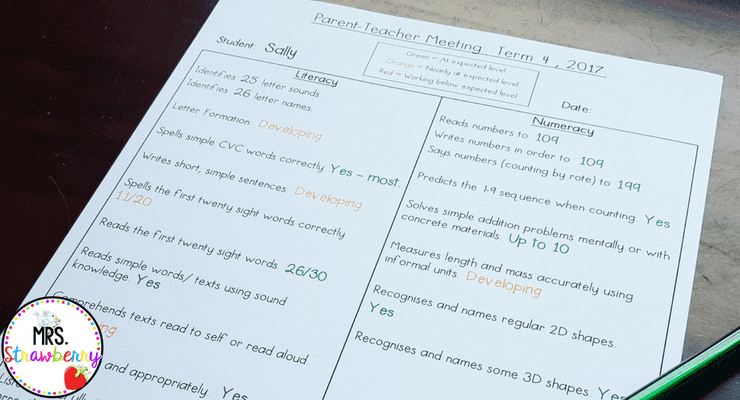 Parent-Teacher Meeting Term 4, 2017
Student: Sally
Green = At expected level
Orange = Nearly at expected level
Red = Working below expected level
Date:
Literacy
Identifies 25 letter sounds
Identifies 26 letter names.
Letter Formation: Developing
Spells simple CVC words correctly Yes - most.
Writes short, simple sentences Developing
Spells the first twenty sight words correctly
11/20
Reads the first twenty sight words 26/30
Reads simple words/ texts using sound
knowledge. Yes
Comprehends texts read to self or read aloud
and appropriately. Yes
Numeracy
Reads numbers to 109
Writes numbers in order to 109
Says numbers (counting by rote) to 199
Predicts the 1-9 sequence when counting Yes
Solves simple addition problems mentally or with
concrete materials Up to 10
Measures length and mass accurately using
informal units Developing
Recognises and names regular 2D shapes.
Yes
Recognises and names some 3D shapes. Yes
MRS.
Strawberry